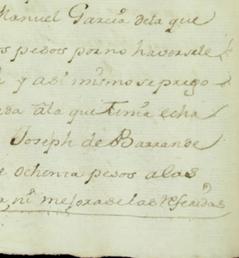 Manuel Garcia dela que
os pesos por no haversele
y asi mismo se prego
ala que tima echa
Joseph de Barrande
e ochenta pesos alas
a, ni mejoras de las referidas